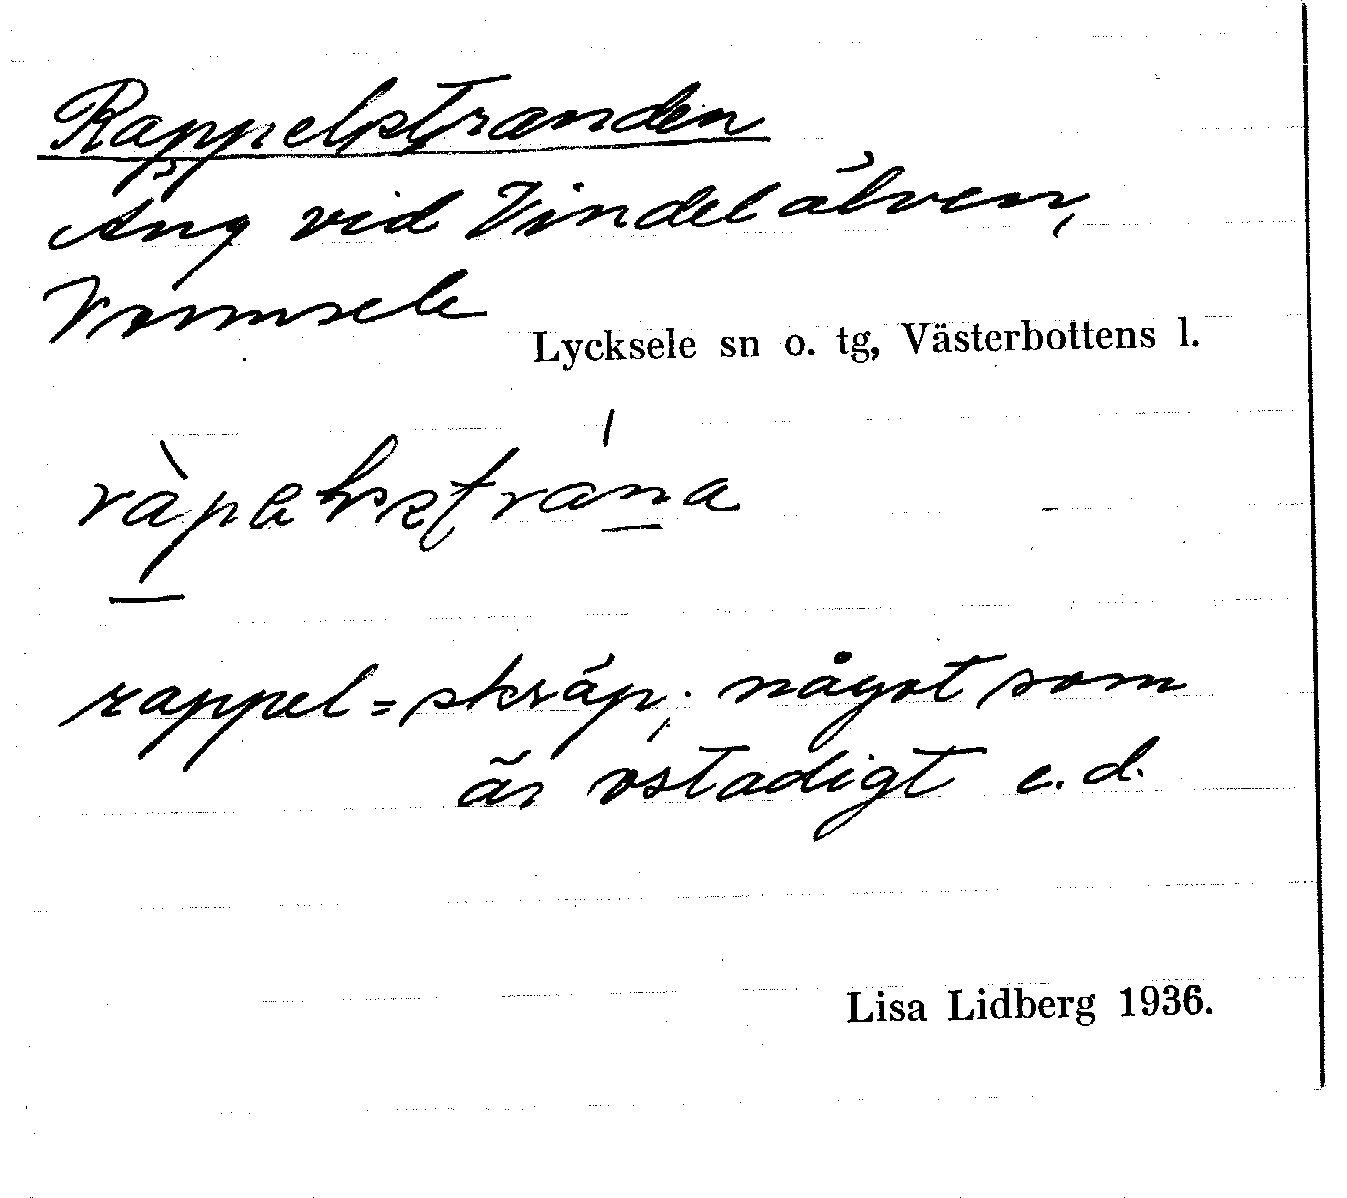 Rappelstranden
Äng vid Vindelälven,
Vormsele
Lycksele sn o. tg, Västerbottens l.
rappel = skräp; något som
är ostadigt e. d.
Lisa Lidberg 1936.